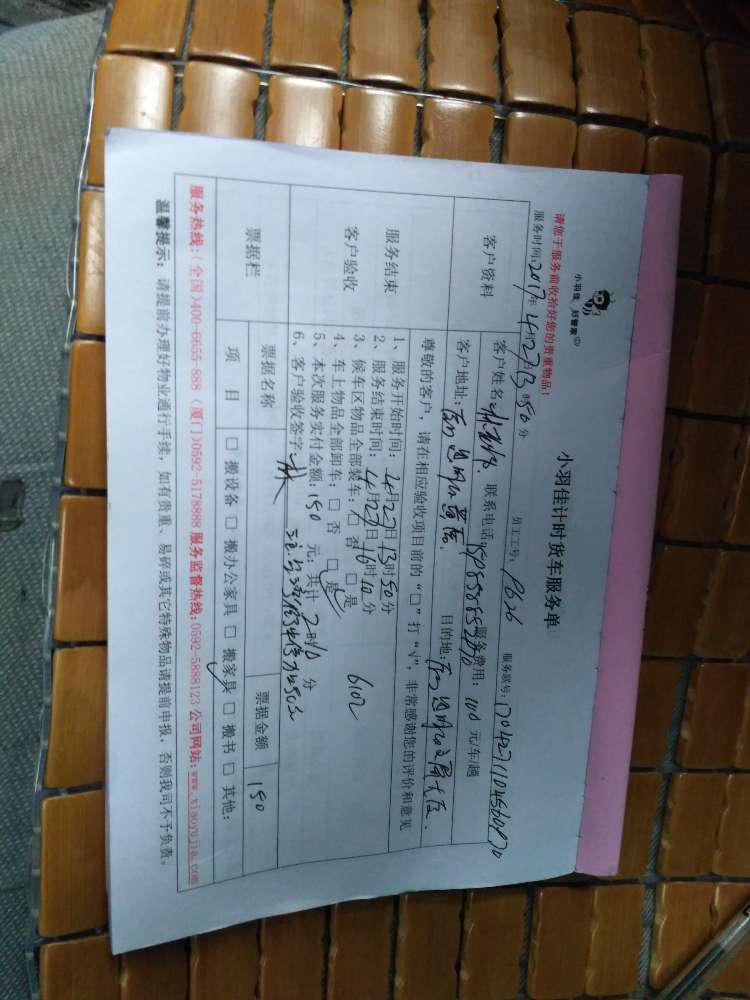 小羽佳 好管家
小羽佳计时货车服务单
请您于服务前收拾好您的贵重物品!
服务时间:2017年4月27日13时50分 员工工号: P626 服务联号:
客户资料
客户姓名: 联系电话: 服务费用:100元/车/趟
客户地址: 目的地:
尊敬的客户,请在相应验收项目前的“□”打“√”,非常感谢您的评价和意见
服务结束
客户验收
1、服务开始时间:4月27日13时50分
2、服务结束时间:4月27日16时10分
3、候车区物品全部装车:□否 □是
4、车上物品全部卸车:□否 □是
5、本次服务实付金额:150元;共计2时10分
6、客户验收签字:
票据栏
票据名称 票据金额 150
项目 □搬设备 □搬办公家具 □搬家具 □搬书 □其他:
服务热线:(全国)400-6655-888 (厦门)0592-5178888 服务监督热线:0592-5888123 公司网站:www.xiaoyujia.com
温馨提示:请提前办理好物业通行手续,如有贵重、易碎或其它特殊物品请提前申报,否则我司不予负责。